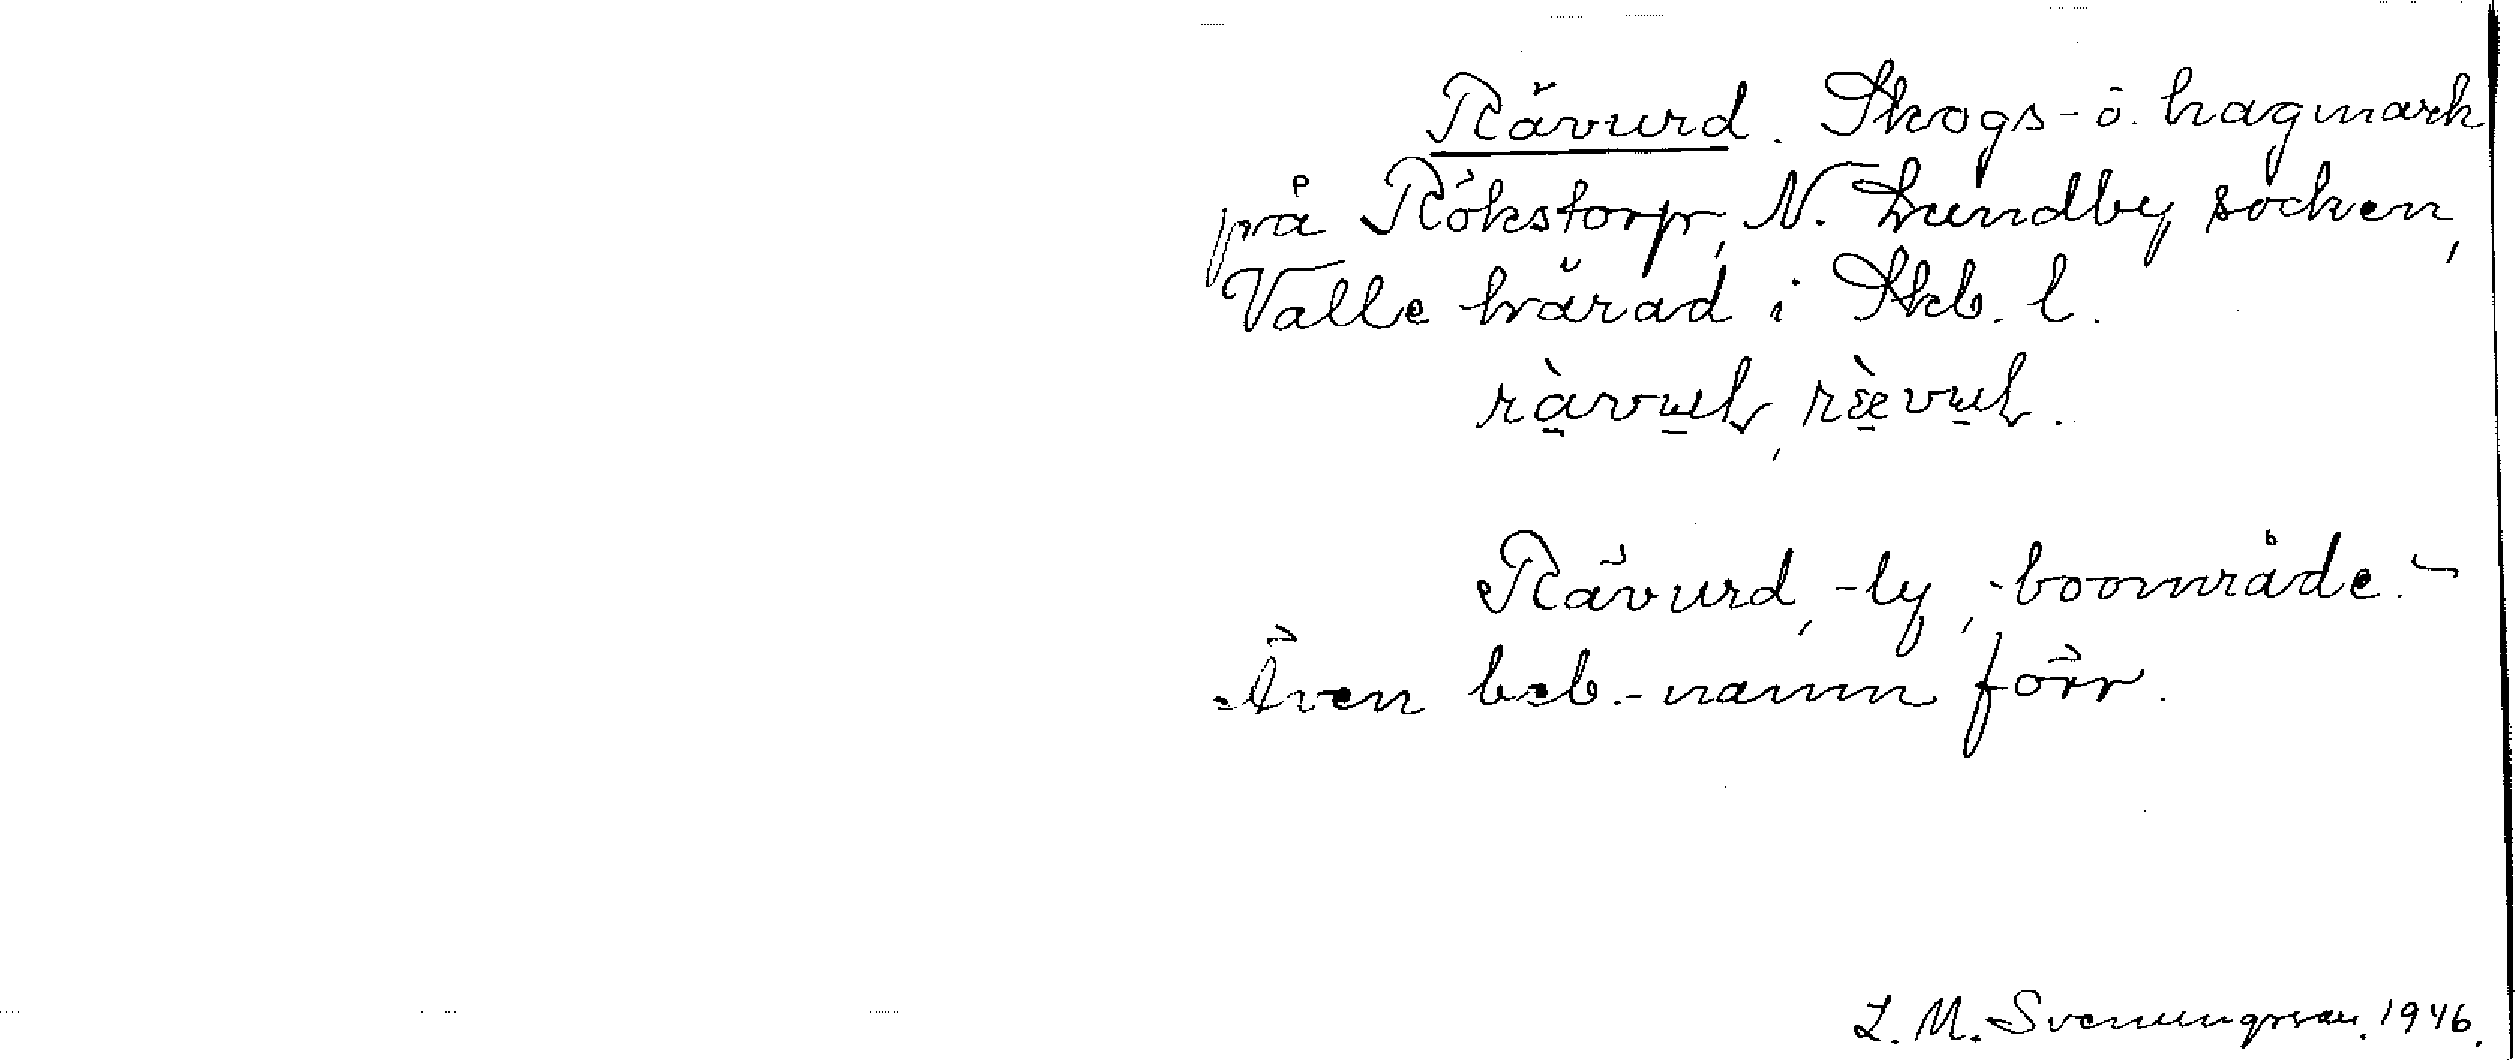 Rävurd. Skogs- o. hagmark
på Rökstorp, N. Lundby socken,
Valle härad i Skb. l.
Rävurd, -ly, -boområde. -
Även beb.-namn förr.
L. M. Svenungsson. 1946.